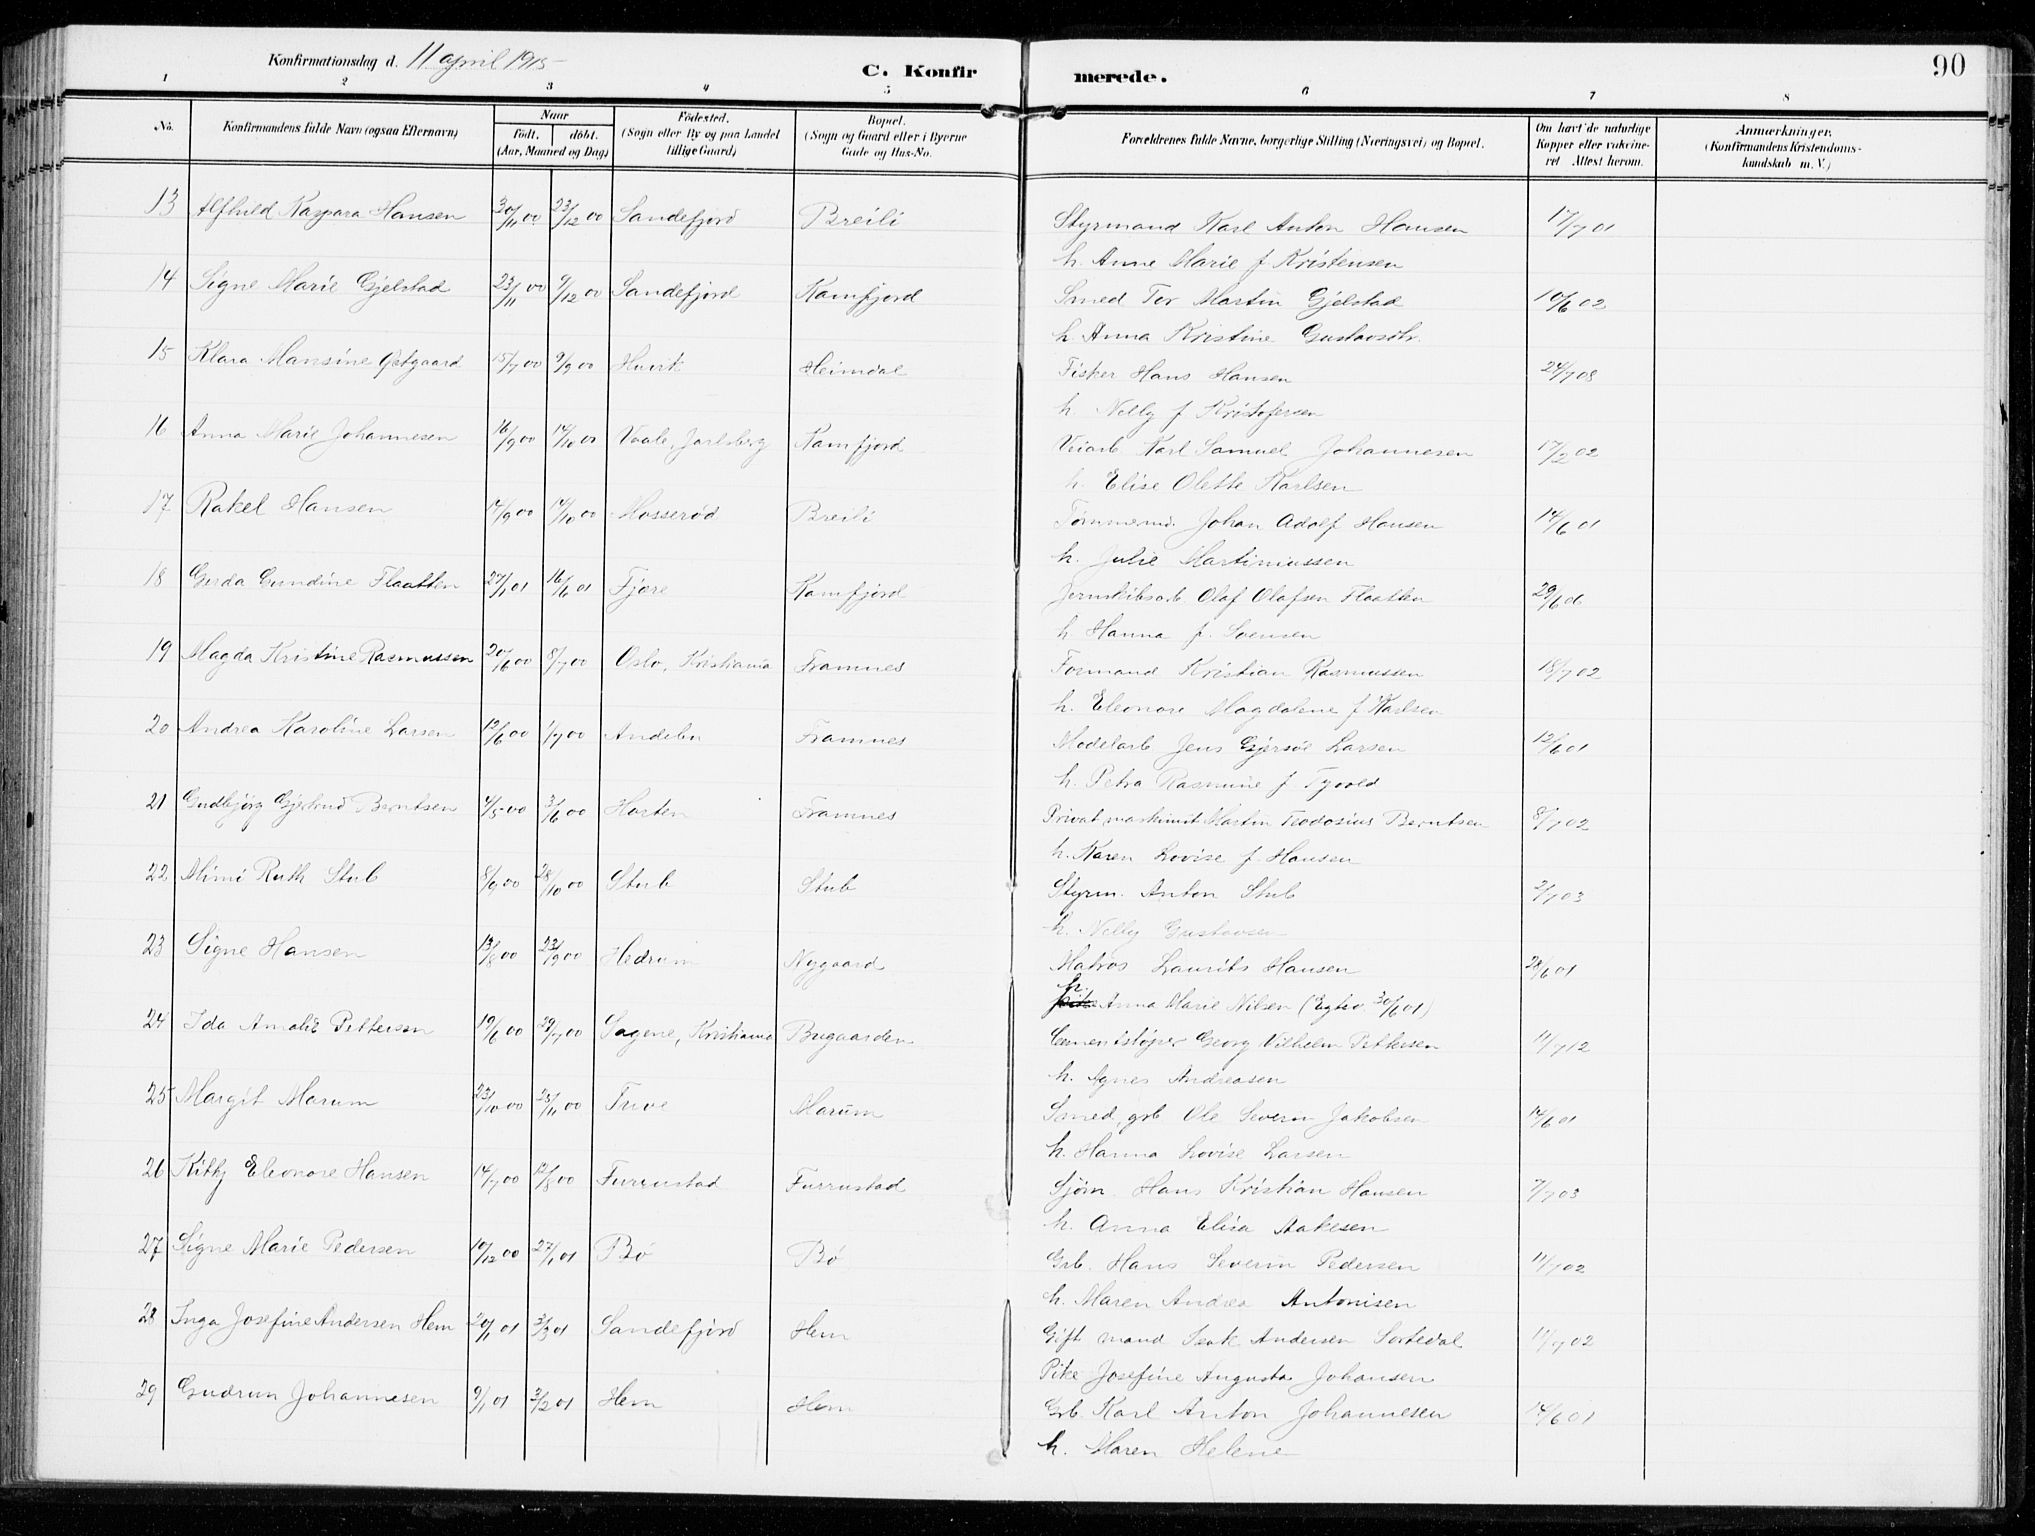 Konfirmationsdag d. 11 april 1915
C. Konfirmerede.
90
1 2 3 4 5 6 7 8
No. Konfirmandens fulde Navn (ogsaa Efternavn) Naar født. døbt. (Aar, Maaned og Dag) Fødested. (Sogn eller By og paa Landet tillige Gaard) Bopæl. (Sogn og Gaard eller i Byerne Gade og Hus-No. Forældrenes fulde Navne, borgerlige Stilling (Næringsvei) og Bopæl. Om havt de naturlige Kopper eller vakcineret. Attest herom. Anmærkninger, (Konfirmandens Kristendomskundskab m. V.)
13 Alfhild Kaspara Hansen 30/11 00 23/12 00 Sandefjord Breili Styrmand Karl Anton Hansen 17/7 01
h. Anne Marie f Kristensen
14 Signe Marie Gjelstad 23/11 00 9/12 00 Sandefjord Kamfjord Smed Tor Martin Gjelstad 10/6 02
h. Anna Kristine Gustavsdtr.
15 Klara Mansine Østgaard 15/7 00 9/9 00 Huvik Heimdal Fisker Hans Hansen 24/7 08
h. Nelly f Kristofersen
16 Anna Marie Johannesen 16/9 00 14/10 00 Vaale, Jarlsberg Kamfjord Veiarb Karl Samuel Johannesen 17/2 02
h. Elise Olette Karlsen
17 Rakel Hansen 14/9 00 14/10 00 Mosserød Breili Tømmermd. Johan Adolf Hansen 14/6 01
h. Julie Martinussen
18 Gerda Gundine Flaatten 27/1 01 16/6 01 Fjære Kamfjord Jernskibsarb Olaf Olafsen Flaatten 29/6 06
h. Hanna f. Svensen
19 Magda Kristine Rasmussen 20/6 00 8/7 00 Oslo, Kristiania Framnes Formand Kristian Rasmussen 18/7 02
h. Eleonore Magdalene f Karlsen
20 Andrea Karoline Larsen 12/6 00 1/7 00 Andebu Framnes Modelarb Jens Gjersøe Larsen 12/6 01
h. Petra Rasmine f.
21 Gudbjørg Gjertrud Berntsen 4/5 00 3/6 00 Horten Framnes Privat maskinist Martin Teodosius Berntsen 8/7 02
h. Karen Lovise f. Hansen
22 Mimi Ruth Stub 8/9 00 28/10 00 Stub Stub Styrm. Anton Stub 2/7 03
h. Nelly Gustavsen
23 Signe Hansen 13/8 00 23/9 00 Hedrum Nygaard Matros Laurits Hansen 28/6 01
h. Anna Marie Nilsen (Egtev. 30/6 01)
24 Ida Amalie Pettersen 19/6 00 29/7 00 Sagene, Kristiania Bugaarden Cementstøper Georg Vilhelm Pettersen 11/7 12
h. Agnes Andreasen
25 Margit Marum 23/10 00 25/11 00 Tuve Marum Smed, grb. Ole Severin Jakobsen 14/6 01
h. Hanna Lovise Larsen
26 Kitty Eleonore Hansen 14/7 00 12/8 00 Furrustad Furrustad Sjøm. Hans Kristian Hansen 7/7 03
h. Anna Elisa Aakesen
27 Signe Marie Pedersen 10/12 00 27/1 01 Bø Bø Grb. Hans Severin Pedersen 11/7 02
h. Maren Andrea Antonisen
28 Inga Josefine Andersen Hem 20/1 01 3/3 01 Sandefjord Hem Gift mand Isak Andersen Sortedal 11/7 02
Pike Josefine Augusta Johansen
29 Gudrun Johannesen 9/1 01 3/2 01 Hem Hem Grb. Karl Anton Johannesen 14/6 01
h. Maren Helene